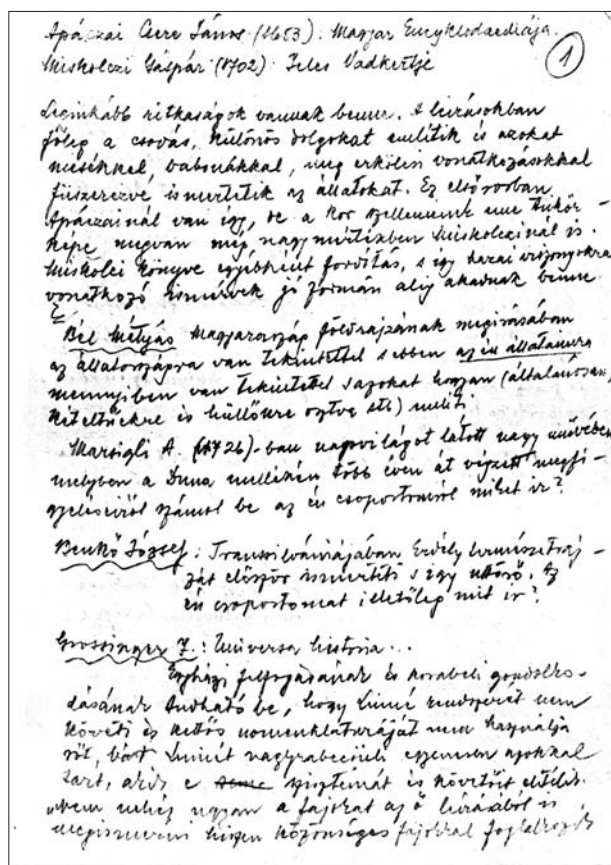 Apáczai Csere János (1653): Magyar Encyklodaediája.
Miskolczi Gáspár (1702): Jeles Vadkertje
1
Leginkább ritkaságok vannak benne. A leírásokban
főleg a csodás, különös dolgokat említik és azokat
mesékkel, babonákkal, meg erkölcsi vonatkozásokkal
fűszerezve ismertetik az állatokat. Ez elsősorban
Apáczainál van így, de a kor szellemének eme tükör-
képe megvan még nagymértékben Miskolczinál is.
Miskolci könyve egyébként fordítás, s így hazai viszonyokra
vonatkozó ismérvek jó formán alig akadnak benne
Bél Mátyás Magyarország földrajzának megírásában
az állatországra van tekintettel s ebben az én állataimra
mennyiben van tekintettel s azokat hogyan (általánosan
kételtűekre és hüllőkre osztva stb) említi
Marsigli A. (1726)-ban napvilágot látott nagy művében
melyben a Duna mellékén több éven át végzett megfi-
gyeléseiről számol be az én csoportomról mit ír?
Benkő József: Transilvániájában Erdély természetraj-
zát először ismerteti s így úttörő. Az
én csoportomat illetőleg mit ír?
Grossinger J.: Universa historia...
Egyházi felfogásának és korabeli gondolko-
dásának tudható be, hogy Linné rendszerét nem
követi és kettős nomenklaturáját nem használja
sőt, bár Linnét nagyrabecsüli egyenesen azokkal
tart, akik e szisztémát és követőit elítélik.
"Nem nehéz ugyan a fajokat az ő leírásából is
megismerni hiszen közönséges fajokkal foglalkozik